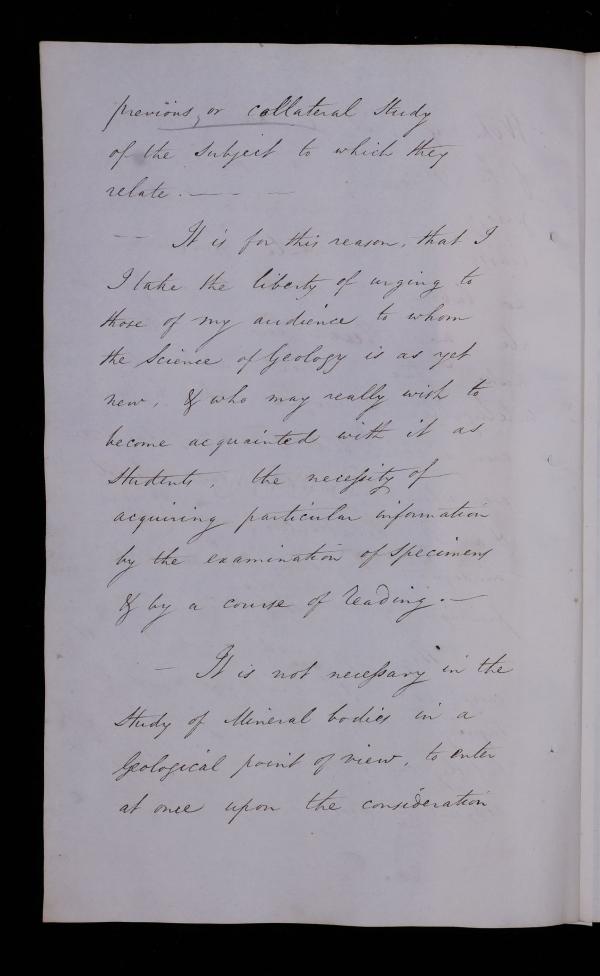 previous, or collateral Study
of the Subject to which they
relate. — — —
— It is for this reason, that I
I take the liberty of urging to
those of my audience to whom
the Science of Geology is as yet
new, & who may really wish to
become acquainted with it as
Students, the necessity of
acquiring particular information
by the examination of Specimens
& by a course of reading. —
— It is not necessary in the
Study of Mineral bodies in a
Geological point of view, to enter
at once upon the consideration